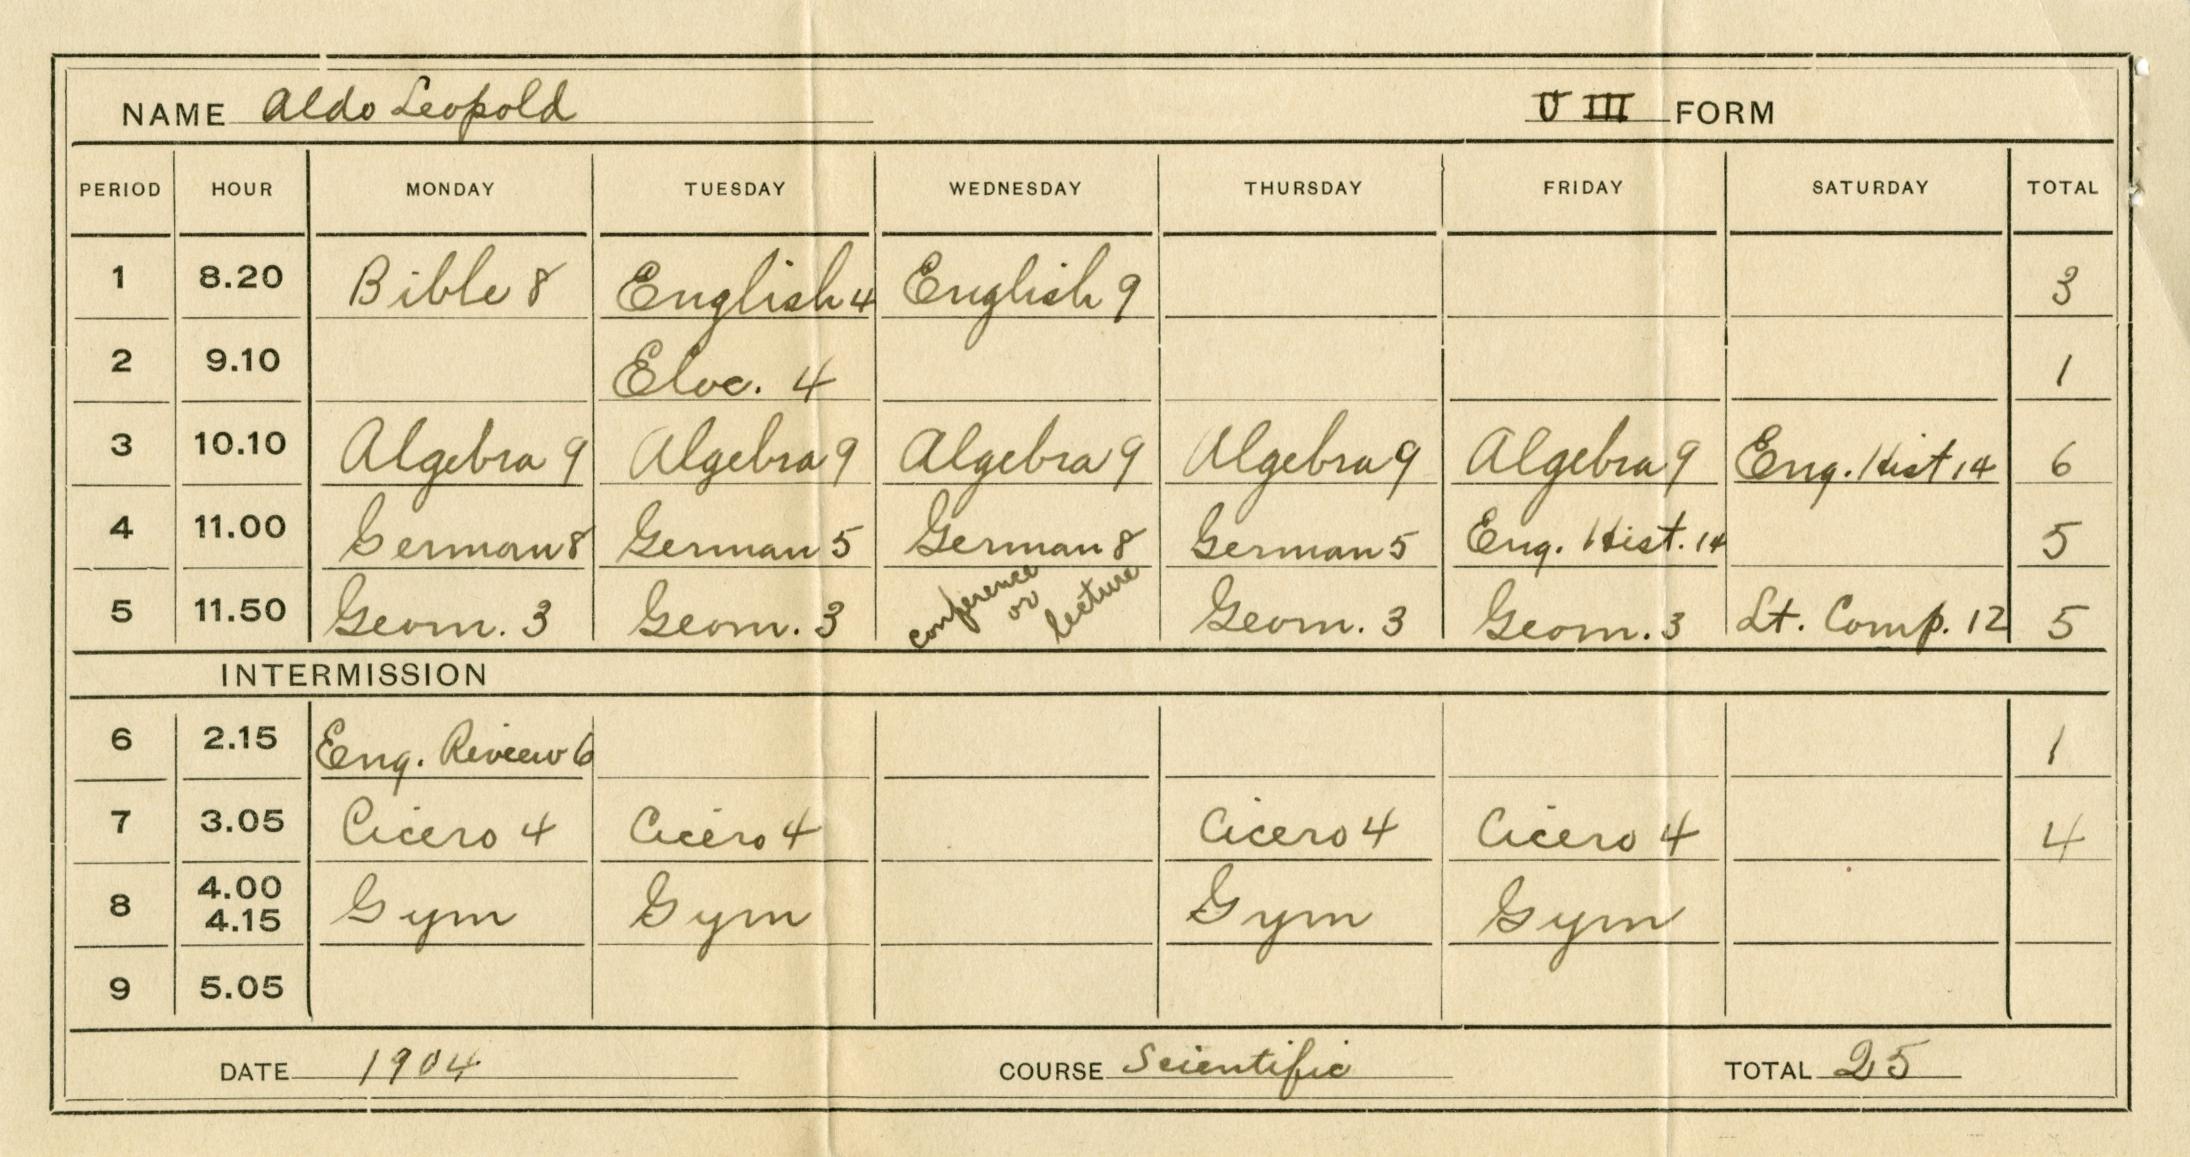 NAME Aldo Leopold U III FORM
PERIOD HOUR MONDAY TUESDAY WEDNESDAY THURSDAY FRIDAY SATURDAY TOTAL
1 8.20 Bible 8 English 4 English 9 3
2 9.10 Eloc. 4 1
3 10.10 Algebra 9 Algebra 9 Algebra 9 Algebra 9 Algebra 9 Eng. Hist 14 6
4 11.00 German 8 German 5 German 8 German 5 Eng. Hist. 14 5
5 11.50 Geom. 3 Geom. 3 conference or lecture Geom. 3 Geom. 3 Lt. Comp. 12 5
INTERMISSION
6 2.15 Eng. Review 6 1
7 3.05 Cicero 4 Cicero 4 Cicero 4 Cicero 4 4
8 4.00 4.15 Gym Gym Gym Gym
9 5.05
DATE 1904 COURSE Scientific TOTAL 25